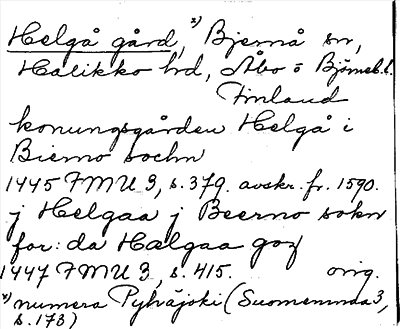 Helgå gård, x) Bjernå sn,
Halikko hd, Åbo o Björneb. l.
Finland
konungsgården Helgå i
Bierno sochn
1445 FMU 3, s. 379. avskr. fr. 1590.
j Helgaa j Beerno sokn
for: da Hælgaa goz
1447 FMU 3, s. 415. orig.
x) numera Pyhäjoki (Suomenmaa 3,
s. 173)